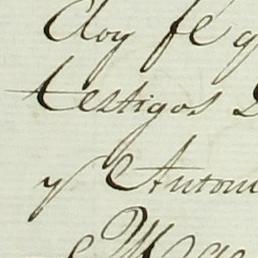 doy fe q
testigos
y Antoni